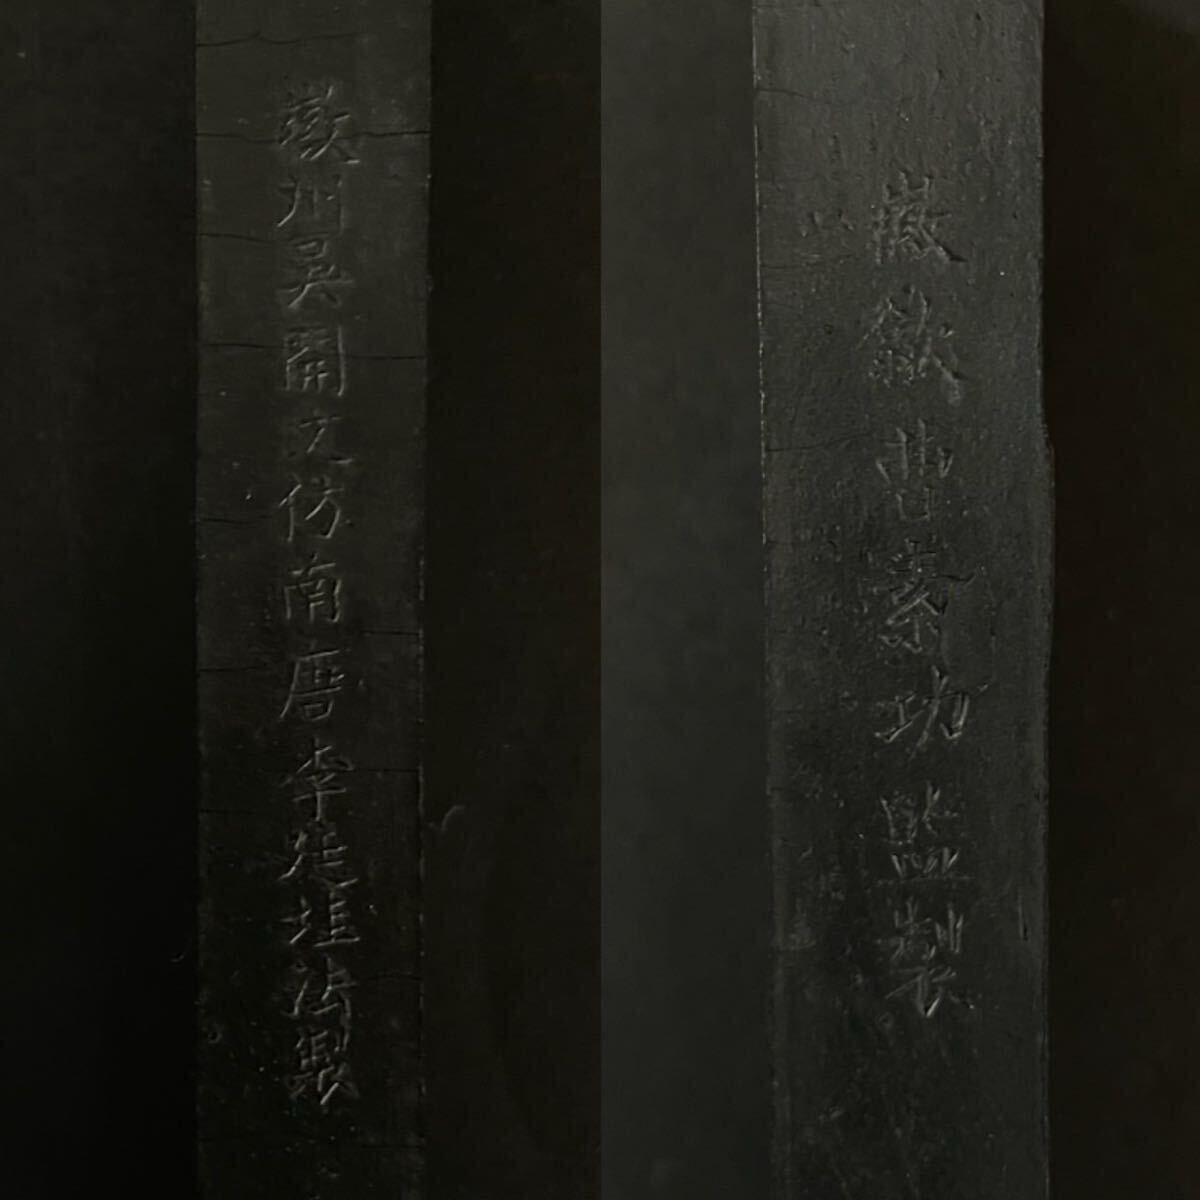 徽州吳開文仿南唐李廷珪法製
徽歙曹素功監製